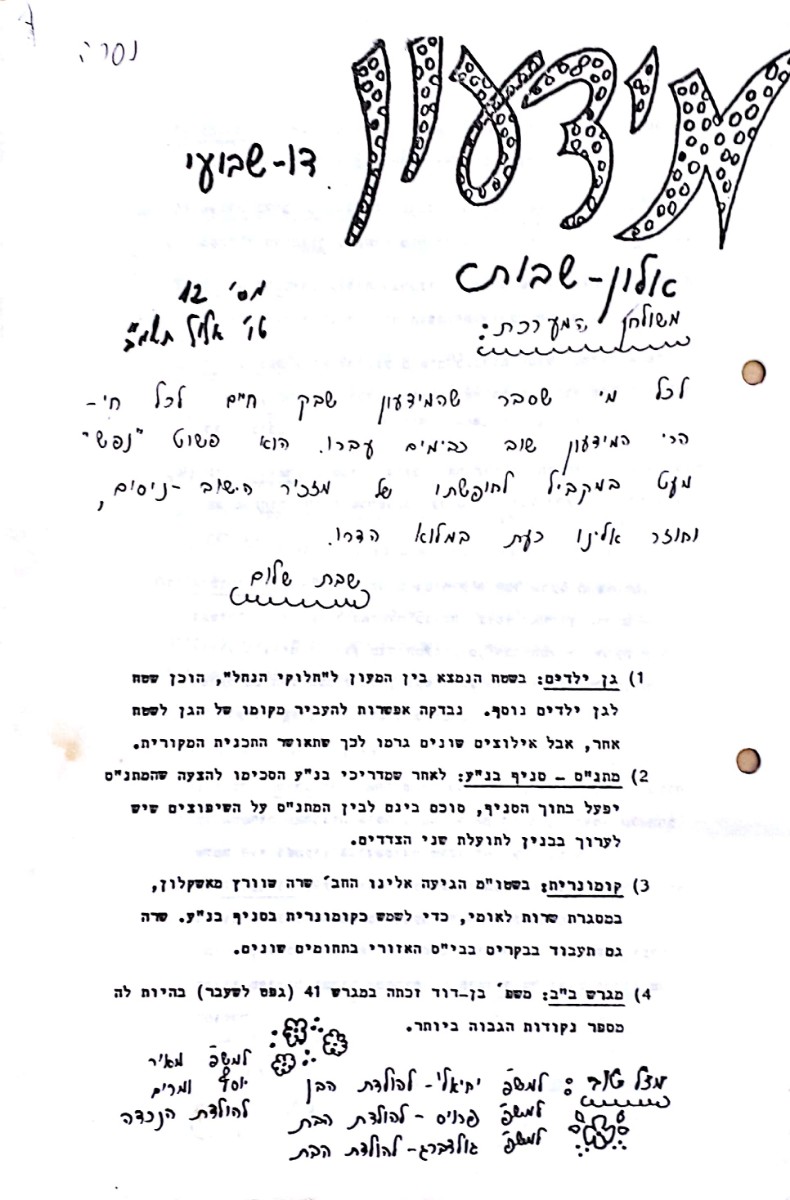 נסרה
מידעון
דו-שבועי
אלון-שבות
מס' 12
טו' אלול תשמ"ב
משולחן המערכת:
לכל מי שסבר שהמידעון שבק חיים לכל חי-
הרי המידעון שוב כבימים עברו. הוא פשוט "נפש"
מעט במקביל לחופשתו של מזכיר הישוב -ניסים,
וחוזר אלינו כעת במלוא הדרו.
שבת שלום
1) גן ילדים: בשטח הנמצא בין המעון ל"חלוקי הנחל", הוכן שטח
לגן ילדים נוסף. נבדקה אפשרות להעביר מקומו של הגן לשטח
אחר, אבל אילוצים שונים גרמו לכך שתאושר התכנית המקורית.
2) מתנ"ס - סניף בנ"ע: לאחר שמדריכי בנ"ע הסכימו להצעה שהמתנ"ס
יפעל בתוך הסניף, סוכם בינם לבין המתנ"ס על השיפוצים שיש
לערוך בבנין לתועלת שני הצדדים.
3) קומונרית: בשטו"מ הגיעה אלינו החב' שרה שוורץ מאשקלון,
במסגרת שרות לאומי, כדי לשמש כקומונרית בסניף בנ"ע. שרה
גם תעבוד בבקרים בבי"ס האזורי בתחומים שונים.
4) מגרש ב"ב: משפ' בן-דוד זכתה במגרש 41 (גפס לשעבר) בהיות לה
מספר נקודות הגבוה ביותר.
מצל טוב: למשפ' יחיאלי- להולדת הבן
למשפ' פרויס - להולדת הבת
למשפ' גולדברג- להולדת הבת
למשפ' מאיר
יוסף ומרים
להולדת הנכדה